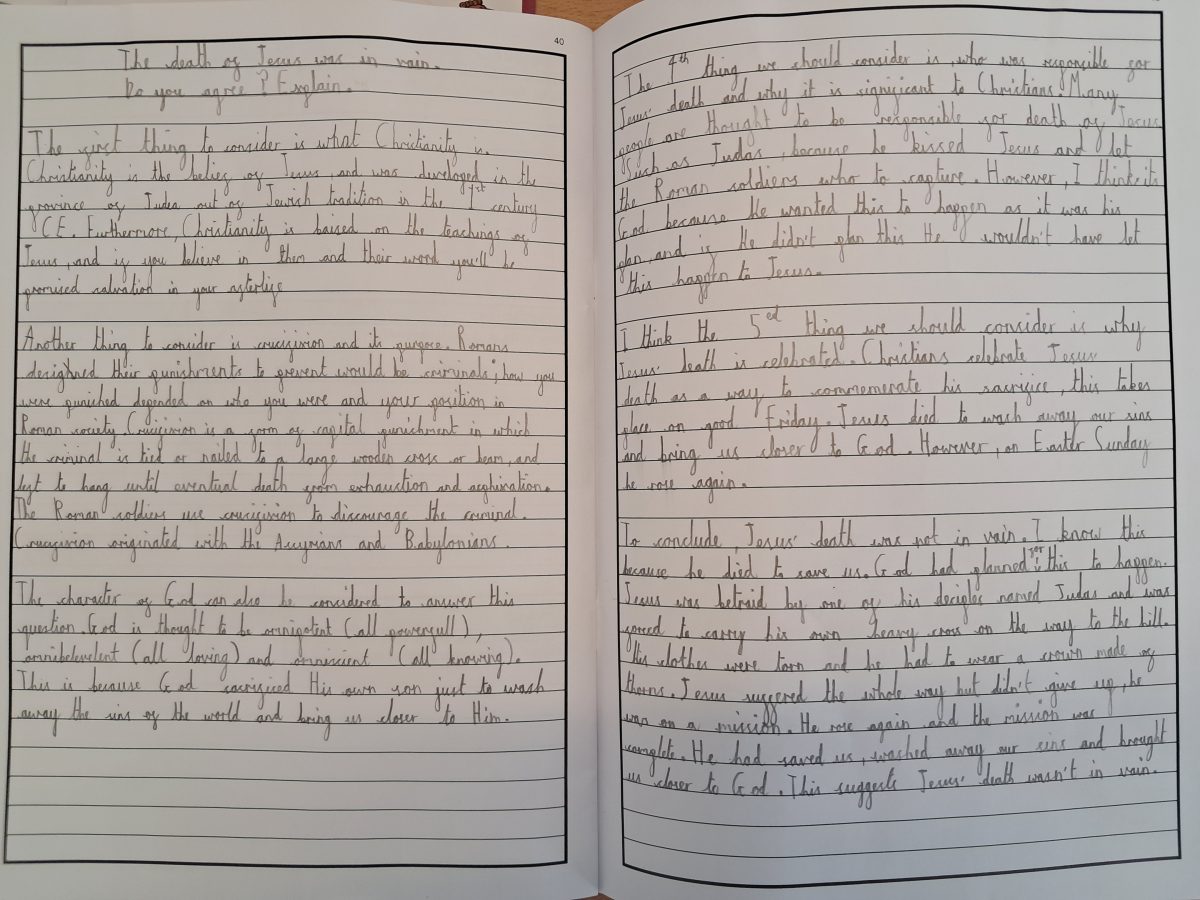 40
The death of Jesus was in vain.
Do you agree? Explain.
The first thing to consider is what Christianity is.
Christianity is the belief of Jesus, and was developed in the
province of Judea out of Jewish tradition in the 1st century
CE. Furthermore, Christianity is baised on the teachings of
Jesus, and if you believe in them and their word you'll be
promised salvation in your afterlife
Another thing to consider is crucifixion and its purpose. Romans
desighned their punishments to prevent would be criminals; how you
were punished depended on who you were and your position in
Roman society. Crucifixion is a form of capital punishment in which
the criminal is tied or nailed to a large wooden cross or beam, and
left to hang until eventual death from exhaustion and asphixation.
The Roman soldiers use crucifixion to discourage the criminal.
Crucifixion originated with the Assyrians and Babylonians.
The character of God can also be considered to answer this
question. God is thought to be omnipotent (all powerfull),
omnibelevelent (all loving) and omniscient (all knowing).
This is because God sacrificed His own son just to wash
away the sins of the world and bring us closer to Him.
The 4th thing we should consider is, who was responsible for
Jesus' death and why it is significant to Christians. Many
people are thought to be responsible for death of Jesus
such as Judas, because he kissed Jesus and let
the Roman soldiers who to capture. However, I think its
God because He wanted this to happen as it was his
plan, and if He didn't plan this He wouldn't have let
this happen to Jesus.
I think the 5ed thing we should consider is why
Jesus' death is celebrated. Christians celebrate Jesus
death as a way to commemerate his sacrifice, this takes
place on good Friday. Jesus died to wash away our sins
and bring us closer to God. However, on Easter Sunday
he rose again.
To conclude, Jesus' death was not in vain. I know this
because he died to save us. God had planned for this to happen.
Jesus was betraid by one of his deciples named Judas and was
forced to carry his own heavy cross on the way to the hill.
His clothes were torn and he had to wear a crown made of
thorns. Jesus suffered the whole way but didn't give up, he
was on a mission. He rose again and the mission was
complete. He had saved us, washed away our sins and brought
us closer to God. This suggests Jesus' death wasn't in vain.